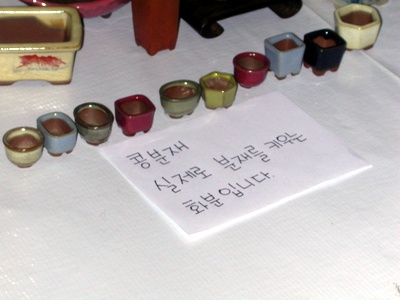 콩분재
실제로 분재를 키우는
화분입니다.